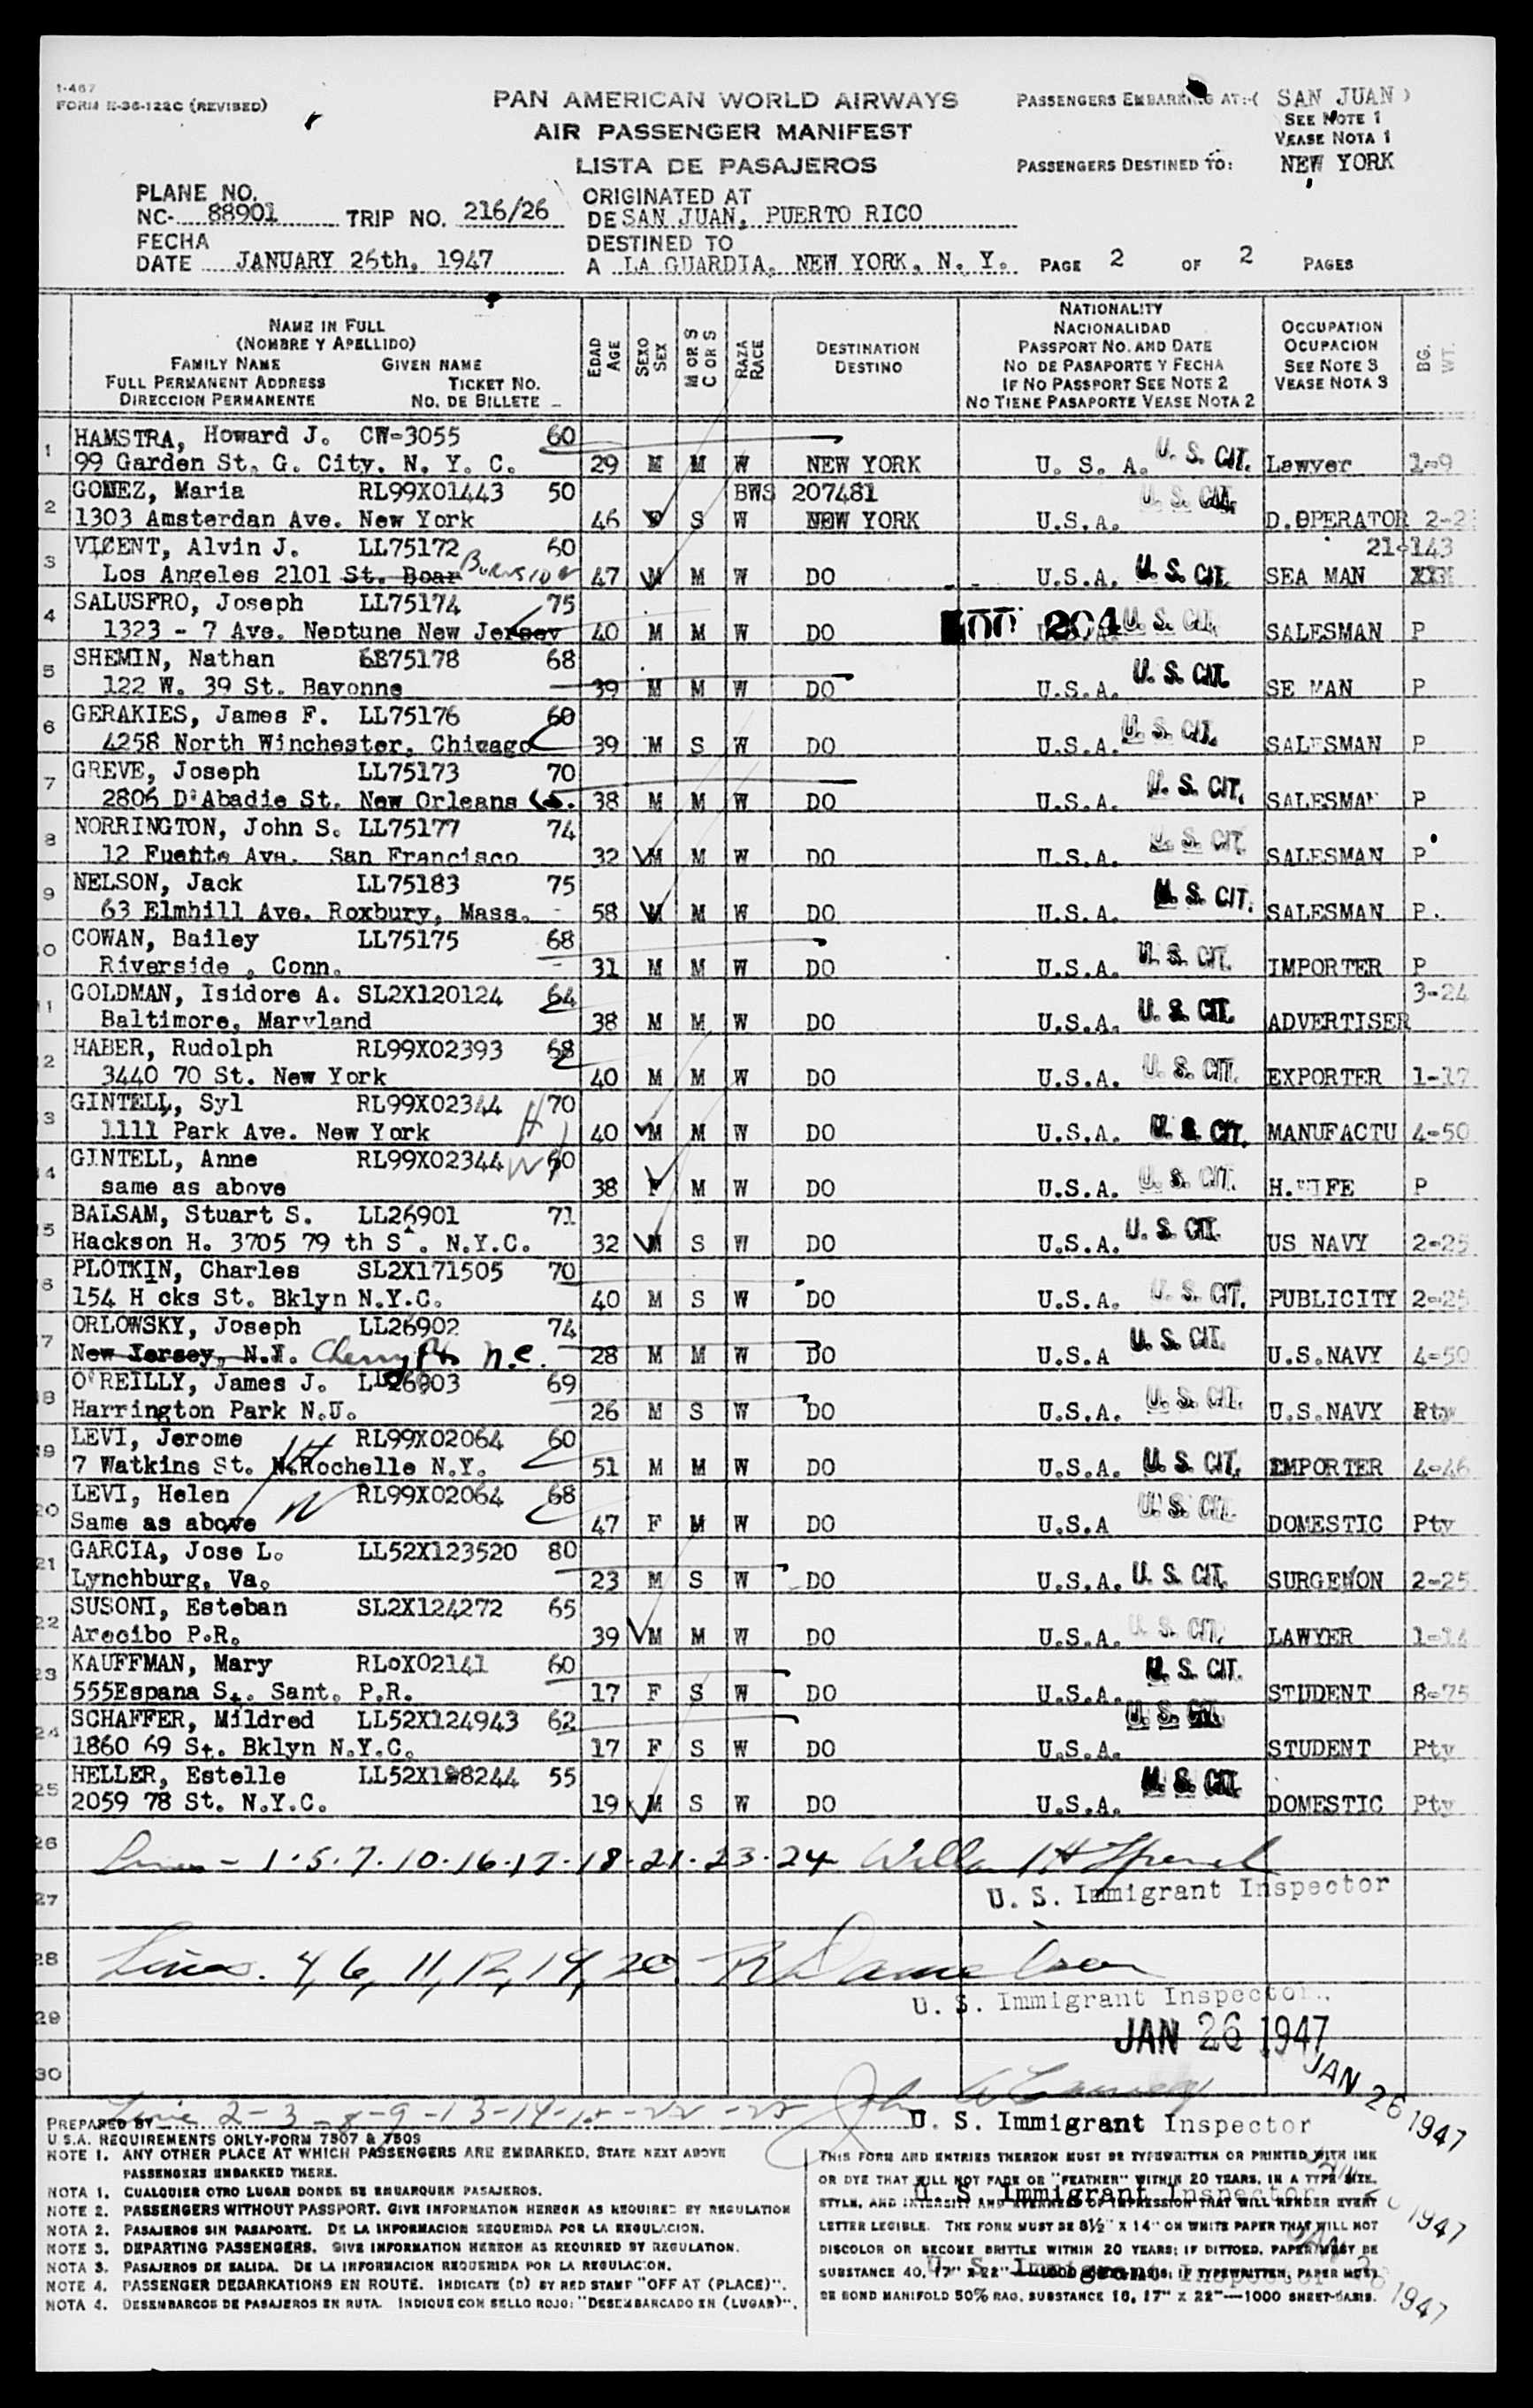 1-467
FORM N-36-122C (REVISED)
PAN AMERICAN WORLD AIRWAYS
AIR PASSENGER MANIFEST
LISTA DE PASAJEROS
PASSENGERS EMBARKING AT:-( SAN JUAN )
SEE NOTE 1
VEASE NOTA 1
PASSENGERS DESTINED TO: NEW YORK
PLANE NO.
NC- 88901 TRIP NO. 216/26
ORIGINATED AT
DE SAN JUAN, PUERTO RICO
FECHA
DATE JANUARY 26th, 1947
DESTINED TO
A LA GUARDIA, NEW YORK, N. Y. PAGE 2 OF 2 PAGES
NAME IN FULL
(NOMBRE Y APELLIDO)
FAMILY NAME GIVEN NAME
FULL PERMANENT ADDRESS TICKET NO.
DIRECCION PERMANENTE NO. DE BILLETE
EDAD AGE
SEXO SEX
M OR S C OR S
RAZA RACE
DESTINATION
DESTINO
NATIONALITY
NACIONALIDAD
PASSPORT NO. AND DATE
NO DE PASAPORTE Y FECHA
IF NO PASSPORT SEE NOTE 2
NO TIENE PASAPORTE VEASE NOTA 2
OCCUPATION
OCUPACION
SEE NOTE 3
VEASE NOTA 3
BG. WT.
1 HAMSTRA, Howard J. CW-3055 60
99 Garden St. G. City. N. Y. C. 29 M M W NEW YORK U. S. A. U. S. CIT. Lawyer 1-9
2 GOMEZ, Maria RL99X01443 50 BWS 207481
1303 Amsterdan Ave. New York 46 F S W NEW YORK U.S.A. U. S. CIT. D.OPERATOR 2-2
3 VICENT, Alvin J. LL75172 60 21-143
Los Angeles 2101 St. Boar 47 M M W DO U.S.A. U. S. CIT. SEA MAN XXX
4 SALUSFRO, Joseph LL75174 75
1323 - 7 Ave. Neptune New Jersey 40 M M W DO 204 U. S. CIT. SALESMAN P
5 SHEMIN, Nathan 75178 68
122 W. 39 St. Bayonne 39 M M W DO U.S.A. U. S. CIT. SE MAN P
6 GERAKIES, James F. LL75176 60
4258 North Winchester, Chicago 39 M S W DO U.S.A. U. S. CIT. SALESMAN P
7 GREVE, Joseph LL75173 70
2806 D'Abadie St. New Orleans 38 M M W DO U.S.A. U. S. CIT. SALESMAN P
8 NORRINGTON, John S. LL75177 74
12 Fuente Ave. San Francisco 32 M M W DO U.S.A. U. S. CIT SALESMAN P
9 NELSON, Jack LL75183 75
63 Elmhill Ave. Roxbury, Mass. 58 M M W DO U.S.A. U. S. CIT. SALESMAN P.
0 COWAN, Bailey LL75175 68
Riverside , Conn. 31 M M W DO U.S.A. U. S. CIT. IMPORTER P
1 GOLDMAN, Isidore A. SL2X120124 64 3-24
Baltimore, Maryland 38 M M W DO U.S.A. U. S. CIT. ADVERTISER
2 HABER, Rudolph RL99X02393 68
3440 70 St. New York 40 M M W DO U.S.A. U. S. CIT. EXPORTER 1-17
3 GINTELL, Syl RL99X02344 H 70
1111 Park Ave. New York 40 M M W DO U.S.A. U. S. CIT. MANUFACTU 4-50
4 GINTELL, Anne RL99X02344 W 60
same as above 38 F M W DO U.S.A. U. S. CIT. H.WIFE P
5 BALSAM, Stuart S. LL26901 71
Hackson H. 3705 79 th S . N.Y.C. 32 M S W DO U.S.A. U. S. CIT. US NAVY 2-25
6 PLOTKIN, Charles SL2X171505 70
154 H cks St. Bklyn N.Y.C. 40 M S W DO U.S.A. U. S. CIT. PUBLICITY 2-25
7 ORLOWSKY, Joseph LL26902 74
New Jersey, N.Y. Cherry Pt. N.C. 28 M M W DO U.S.A U. S. CIT. U.S.NAVY 4-50
8 O'REILLY, James J. LL26903 69
Harrington Park N.J. 26 M S W DO U.S.A. U. S. CIT. U.S.NAVY Pty
19 LEVI, Jerome RL99X02064 60
7 Watkins St. N.Rochelle N.Y. H 51 M M W DO U.S.A. U. S. CIT. IMPORTER 4-46
20 LEVI, Helen RL99X02064 68
Same as above W 47 F M W DO U.S.A U. S. CIT. DOMESTIC Pty
21 GARCIA, Jose L. LL52X123520 80
Lynchburg, Va. 23 M S W DO U.S.A. U. S. CIT. SURGENON 2-25
22 SUSONI, Esteban SL2X124272 65
Arecibo P.R. 39 M M W DO U.S.A. U. S. CIT. LAWYER 1-14
23 KAUFFMAN, Mary RLoX02141 60
555Espana St. Sant. P.R. 17 F S W DO U.S.A. U. S. CIT. STUDENT 8-75
24 SCHAFFER, Mildred LL52X124943 62
1860 69 St. Bklyn N.Y.C. 17 F S W DO U.S.A. U. S. CIT. STUDENT Pty
25 HELLER, Estelle LL52X128244 55
2059 78 St. N.Y.C. 19 M S W DO U.S.A. U. S. CIT. DOMESTIC Pty
26 Lines - 1.5.7.10.16.17.18.21.23.24
27 U. S. Immigrant Inspector
28 Lines. 4, 6, 11, 12, 19, 20. R Danielson
U. S. Immigrant Inspector.
29 JAN 26 1947
30 JAN 26 1947
PREPARED BY Line 2-3-8-9-13-14-15-22-25 John
U. S. Immigrant Inspector
U.S.A. REQUIREMENTS ONLY-FORM 7507 & 7509
NOTE 1. ANY OTHER PLACE AT WHICH PASSENGERS ARE EMBARKED, STATE NEXT ABOVE
PASSENGERS EMBARKED THERE.
NOTA 1. CUALQUIER OTRO LUGAR DONDE SE EMBARQUEN PASAJEROS.
NOTE 2. PASSENGERS WITHOUT PASSPORT. GIVE INFORMATION HEREON AS REQUIRED BY REGULATION
NOTA 2. PASAJEROS SIN PASAPORTE. DE LA INFORMACION REQUERIDA POR LA REGULACION.
NOTE 3. DEPARTING PASSENGERS. GIVE INFORMATION HEREON AS REQUIRED BY REGULATION.
NOTA 3. PASAJEROS DE SALIDA. DE LA INFORMACION REQUERIDA POR LA REGULACION.
NOTE 4. PASSENGER DEBARKATIONS EN ROUTE. INDICATE (D) BY RED STAMP "OFF AT (PLACE)".
NOTA 4. DESEMBARCOS DE PASAJEROS EN RUTA. INDIQUE CON SELLO ROJO: "DESEMBARCADO EN (LUGAR)".
THIS FORM AND ENTRIES THEREON MUST BE TYPEWRITTEN OR PRINTED WITH INK
OR DYE THAT WILL NOT FADE OR "FEATHER" WITHIN 20 YEARS, IN A TYPE SIZE,
U. S. Immigrant Inspector
STYLE, AND INTENSITY AND EVENNESS OF IMPRESSION THAT WILL RENDER EVERY
LETTER LEGIBLE. THE FORM MUST BE 8½" X 14" ON WHITE PAPER THAT WILL NOT
1947
DISCOLOR OR BECOME BRITTLE WITHIN 20 YEARS; IF DITTOED, PAPER MUST BE
U. S. Immigrant Inspector
SUBSTANCE 40, 17" X 22"—1000 SHEET-BASIS; IF TYPEWRITTEN, PAPER MUST
BE BOND MANIFOLD 50% RAG, SUBSTANCE 16, 17" X 22"—1000 SHEET-BASIS.
1947